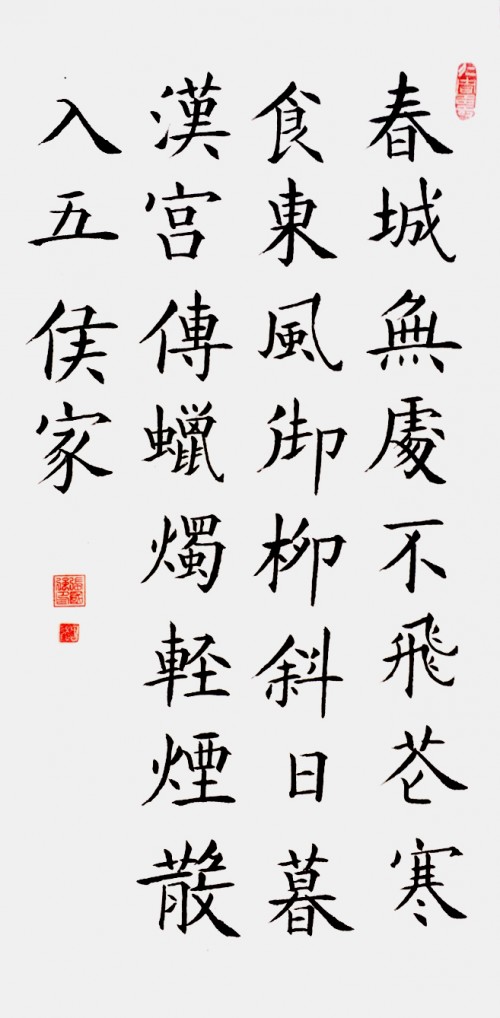 春城無處不飛花寒
食東風御柳斜日暮
漢宫傳蠟燭軽煙散
入五侯家